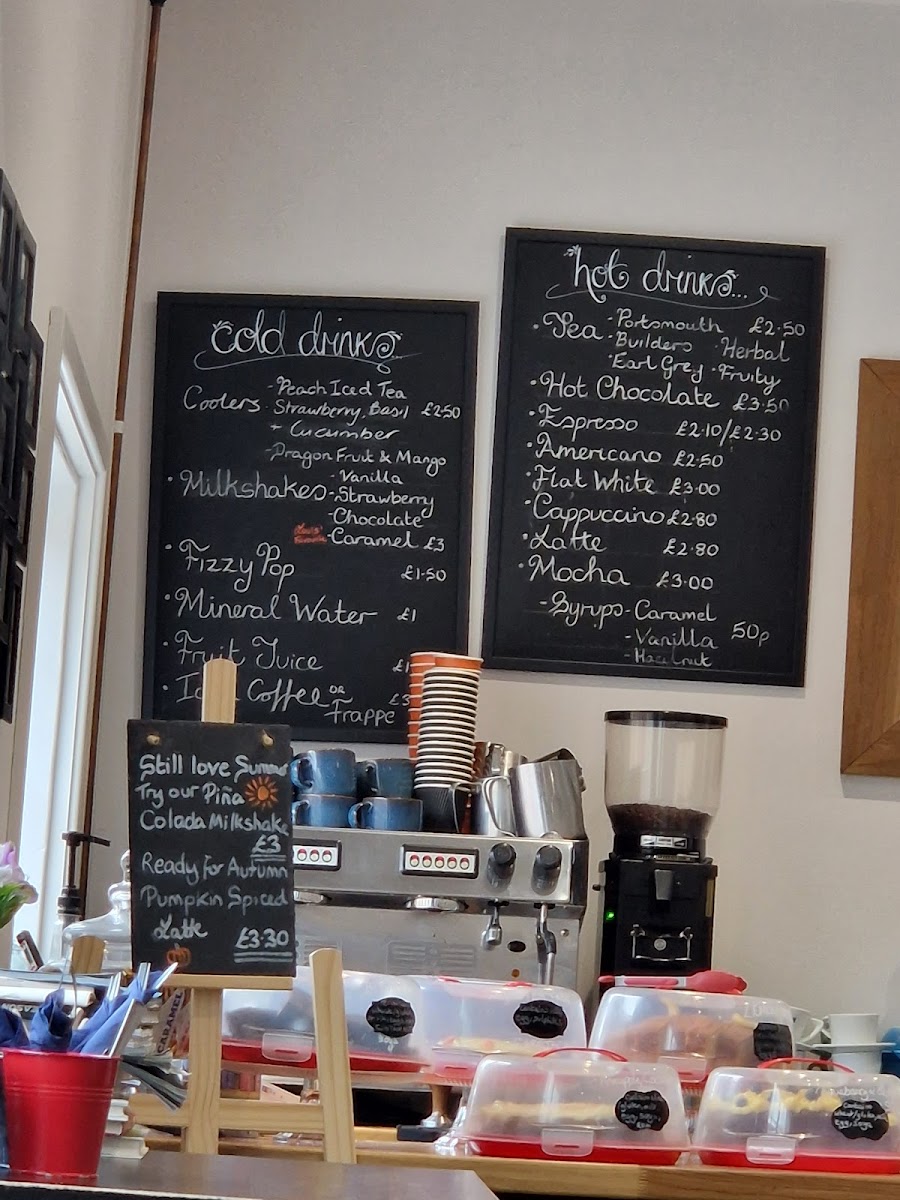 cold drinks...
Coolers - Peach Iced Tea
- Strawberry, Basil £2.50
+ Cucumber
- Dragon Fruit & Mango
· Milkshakes - Vanilla
- Strawberry
- Chocolate
- Caramel £3
· Fizzy Pop £1.50
· Mineral Water £1
· Fruit Juice
· Coffee OR
Frappe
hot drinks...
· Tea - Portsmouth £2.50
- Builders · Herbal
· Earl Grey · Fruity
· Hot Chocolate £3.50
· Espresso £2.10/£2.30
· Americano £2.50
· Flat White £3.00
· Cappuccino £2.80
· Latte £2.80
· Mocha £3.00
- Syrups - Caramel
- Vanilla 50p
- Hazelnut
Still love Summer
Try our Piña
Colada Milkshake
£3
Ready for Autumn
Pumpkin Spiced
Latte £3.30
CARAMEL